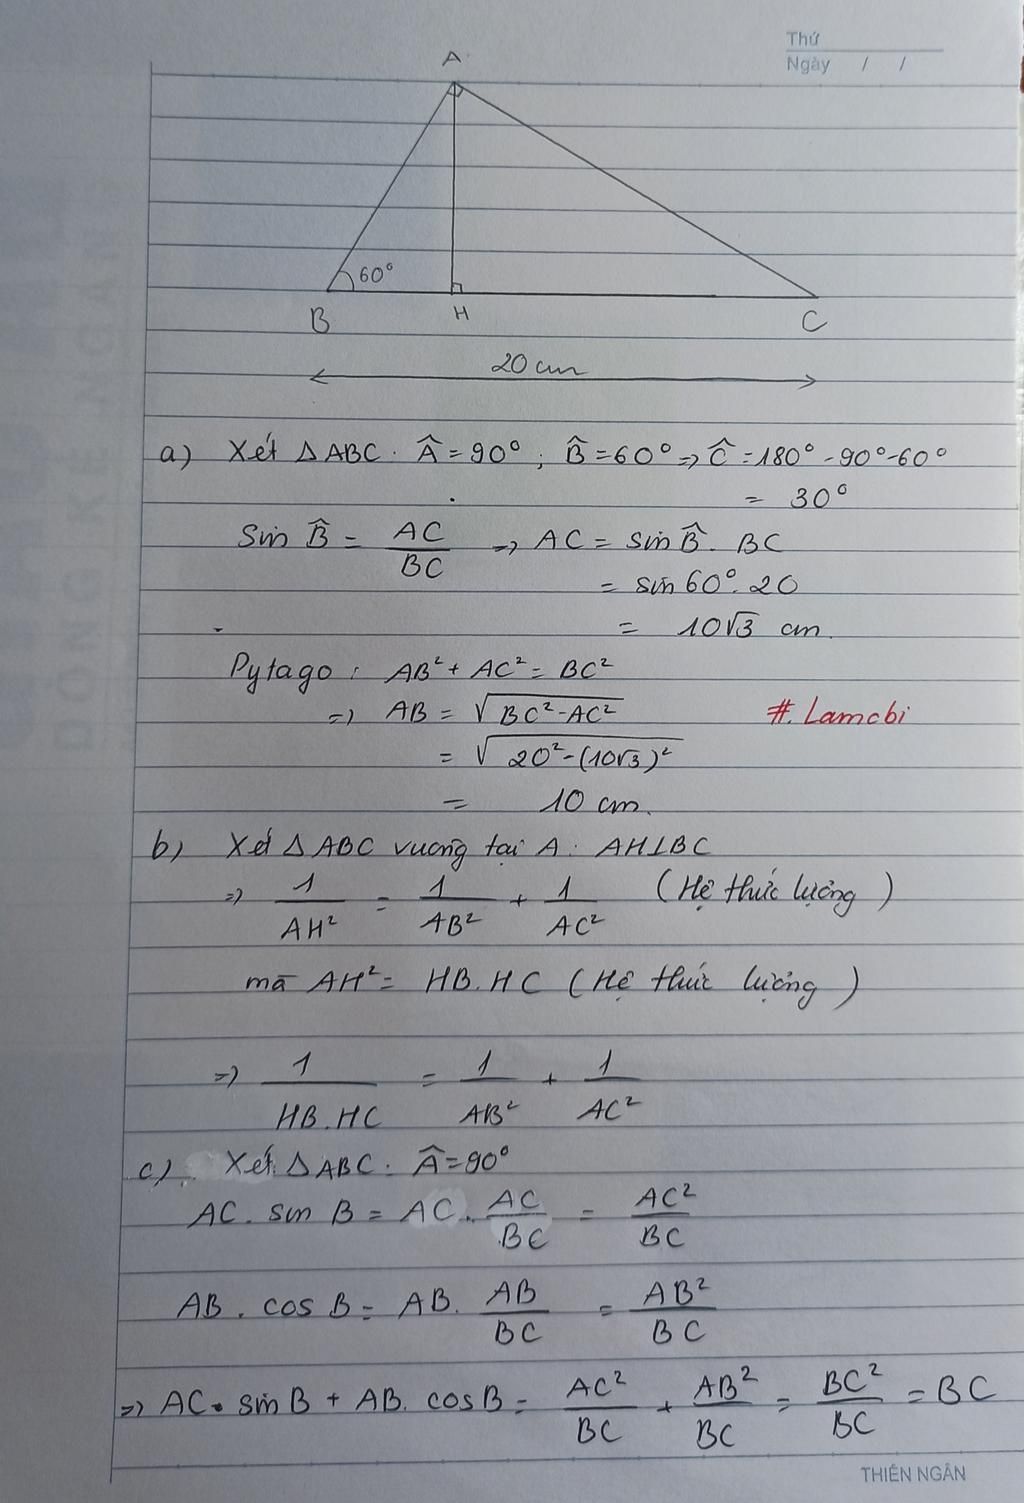 Thứ
Ngày / /
A
60°
B H C
20 cm
a) Xét △ABC. Â = 90°; B̂ = 60° => Ĉ = 180° - 90° - 60°
= 30°
Sin B̂ = AC/BC => AC = sin B̂. BC
= sin 60°. 20
= 10√3 cm.
Pytago: AB² + AC² = BC²
=> AB = √(BC² - AC²)
#. Lamcbi
= √(20² - (10√3)²)
= 10 cm.
b) Xét △ABC vuông tại A: AH⊥BC
=> 1/AH² = 1/AB² + 1/AC² (Hệ thức lượng)
mà AH² = HB.HC (Hệ thức lượng)
=> 1/HB.HC = 1/AB² + 1/AC²
c) Xét △ABC. Â = 90°
AC. sin B = AC. AC/BC = AC²/BC
AB. cos B = AB. AB/BC = AB²/BC
=> AC. sin B + AB. cos B = AC²/BC + AB²/BC = BC²/BC = BC
THIÊN NGÂN